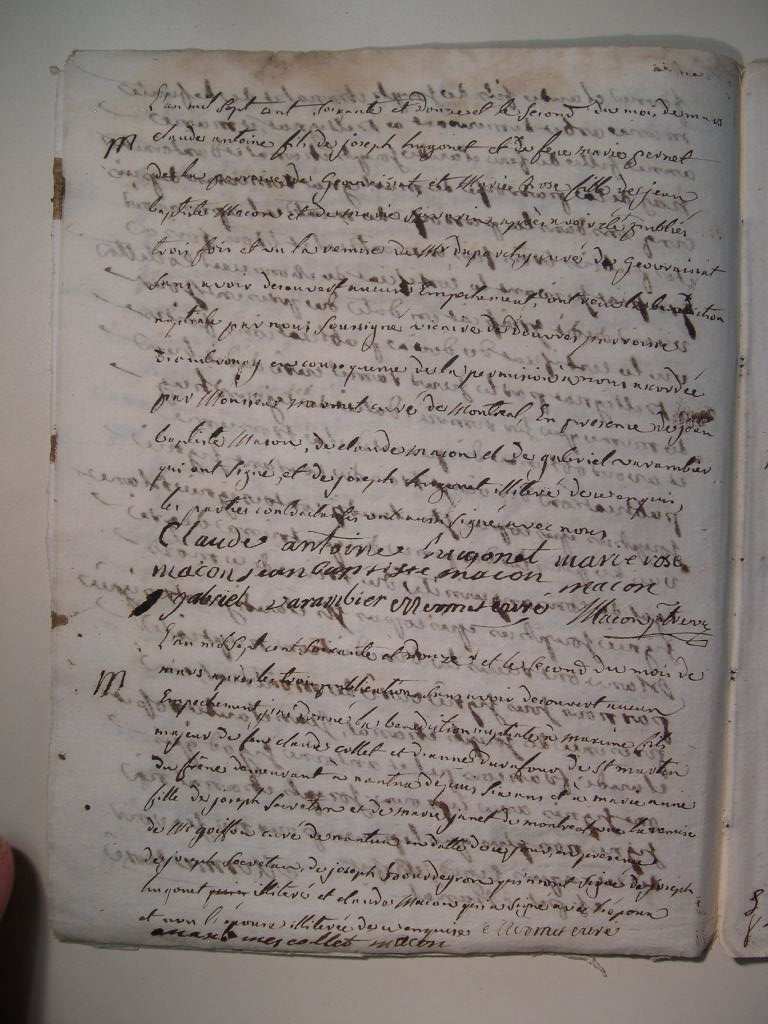 L'an mil sept cent soixante et douze et le second du mois de mars
M claude antoine fils de joseph hugonet et de feue marie pernot
de la paroisse de Geovraissiat et Marie Rose fille de jean
baptiste Macon et de marie après avoir été publiés
trois fois et vu la remise de Mr curé de Geovraissiat
sans avoir decouvert aucun Empechement, ont reçu la benediction
nuptiale par nous soussigné vicaire de paroisse
en consequence de la permission a nous accordée
par Monsieur mermet curé de Montreal En presence de jean
baptiste Macon, de claude macon et de gabriel varambier
qui ont signé, et de joseph hugonet illiteré de ce enquis
les parties contractantes ont aussi signé avec nous
Claude antoine hugonet marie rose
macon jean baptiste macon macon
gabriel varambier Mermet curé Macon
L'an mil sept cent soixante et douze et le second du mois de
M mars après les trois publications sans avoir decouvert aucun
Empechement j'ai donné la benediction nuptiale a maxime fils
majeur de feu claude collet et d'anne de St martin
du frêne demeurant a nantua depuis six ans et a marie anne
fille de joseph Secretan et de marie janet de montreal vu la remise
de Mr goiffon curé de nantua en datte de ce jour, en presence
de joseph Secretan, de joseph qui n'ont signé de joseph
hugonet illiteré et claude Macon qui a signé avec l'epoux
et non l'épouse illiterée de ce enquise Mermet curé
maxime collet macon